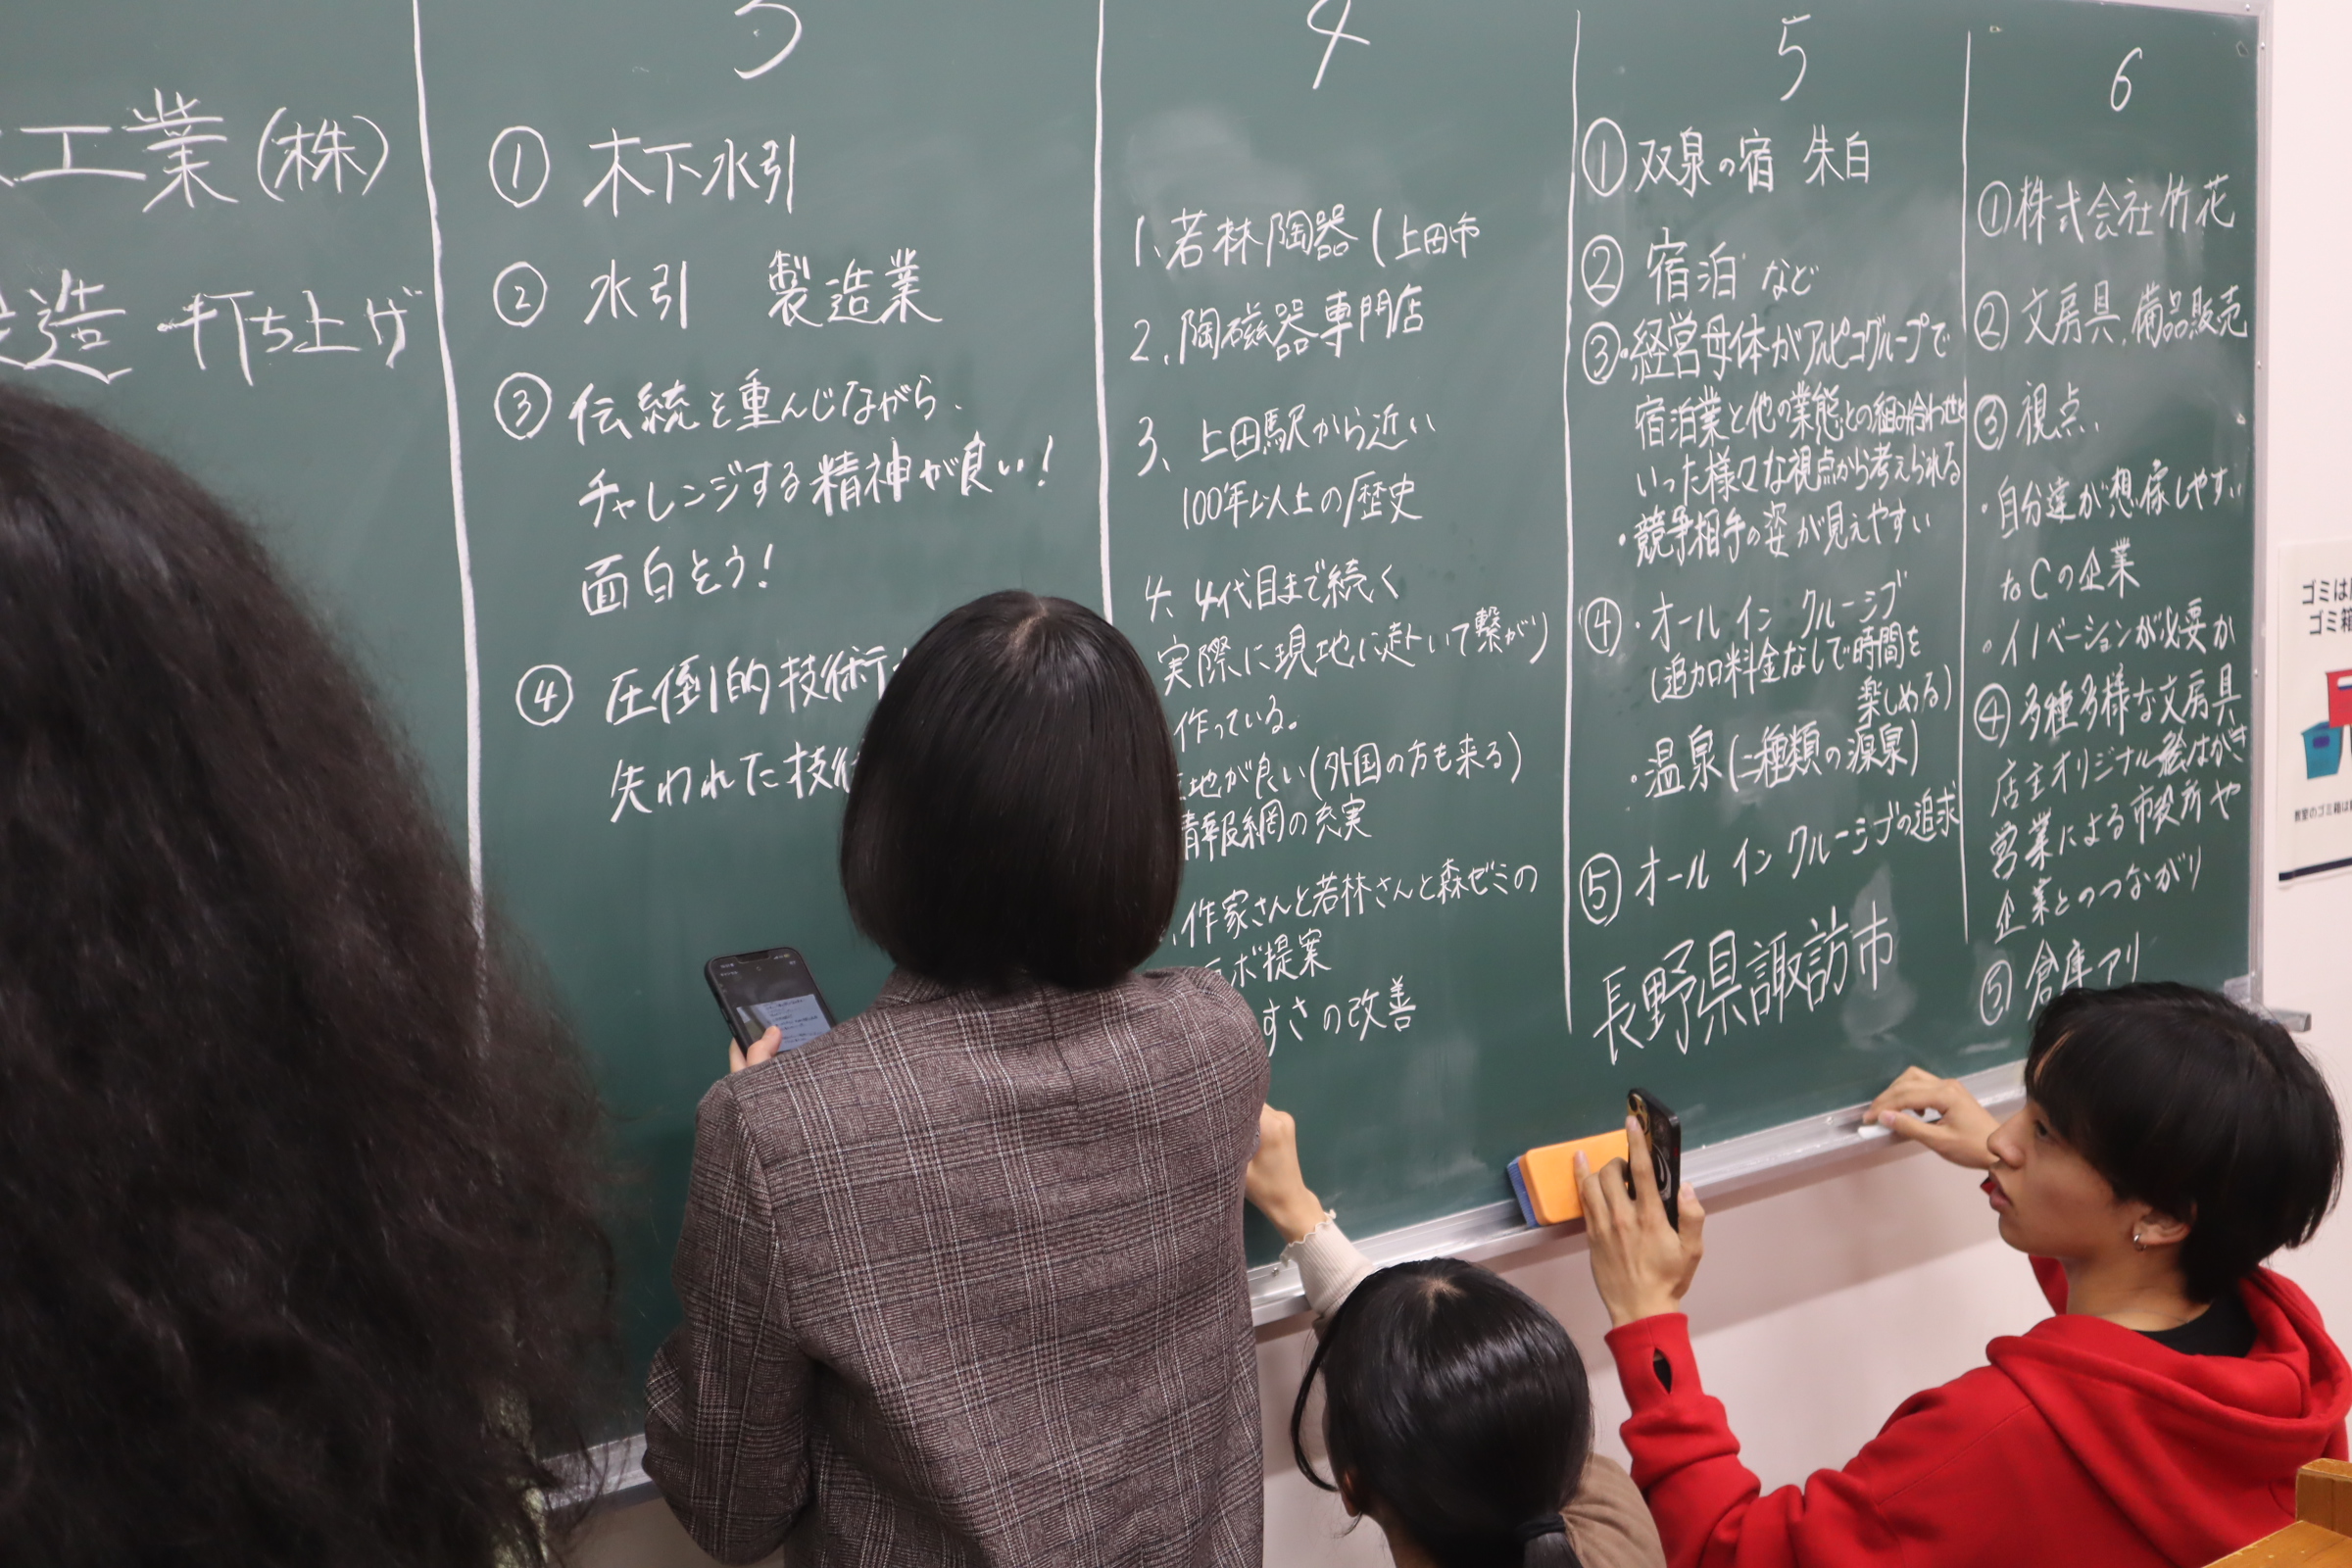 工業(株)
造 打ち上げ
3
① 木下水引
② 水引 製造業
③ 伝統を重んじながら、
チャレンジする精神が良い!
面白そう!
④ 圧倒的技術
失われた技術
4
1、若林陶器(上田市
2、陶磁器専門店
3、上田駅から近い
100年以上の歴史
4、4代目まで続く
実際に現地に赴いて繋がり
作っている。
地が良い(外国の方も来る)
情報網の充実
作家さんと若林さんと森ゼミの
ボ提案
すさの改善
5
① 双泉の宿 朱白
② 宿泊 など
③・経営母体がアルピコグループで
宿泊業と他の業態との組み合わせと
いった様々な視点から考えられる
・競争相手の姿が見えやすい
④・オールインクルーシブ
(追加料金なしで時間を
楽しめる)
・温泉(二種類の源泉)
⑤ オールインクルーシブの追求
長野県諏訪市
6
①株式会社竹花
② 文房具、備品販売
③ 視点、
・自分達が想像しやすい
なCの企業
・イノベーションが必要か
④ 多種多様な文房具
店主オリジナル絵はがき
営業による市役所や
企業とのつながり
⑤ 倉庫アリ
ゴミは
ゴミ箱
教室のゴミ箱は